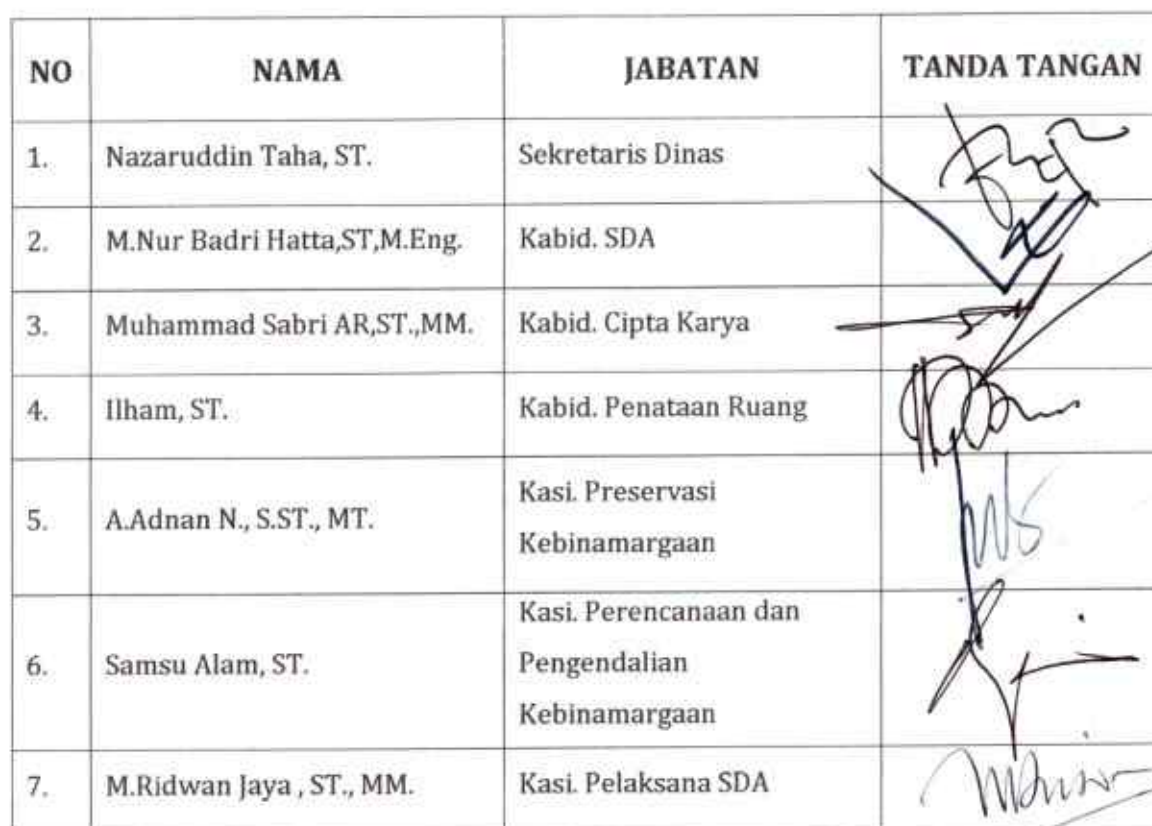 NO NAMA JABATAN TANDA TANGAN
1. Nazaruddin Taha, ST. Sekretaris Dinas
2. M.Nur Badri Hatta,ST,M.Eng. Kabid. SDA
3. Muhammad Sabri AR,ST.,MM. Kabid. Cipta Karya
4. Ilham, ST. Kabid. Penataan Ruang
5. A.Adnan N., S.ST., MT. Kasi. Preservasi
Kebinamargaan
6. Samsu Alam, ST. Kasi. Perencanaan dan
Pengendalian
Kebinamargaan
7. M.Ridwan Jaya , ST., MM. Kasi. Pelaksana SDA